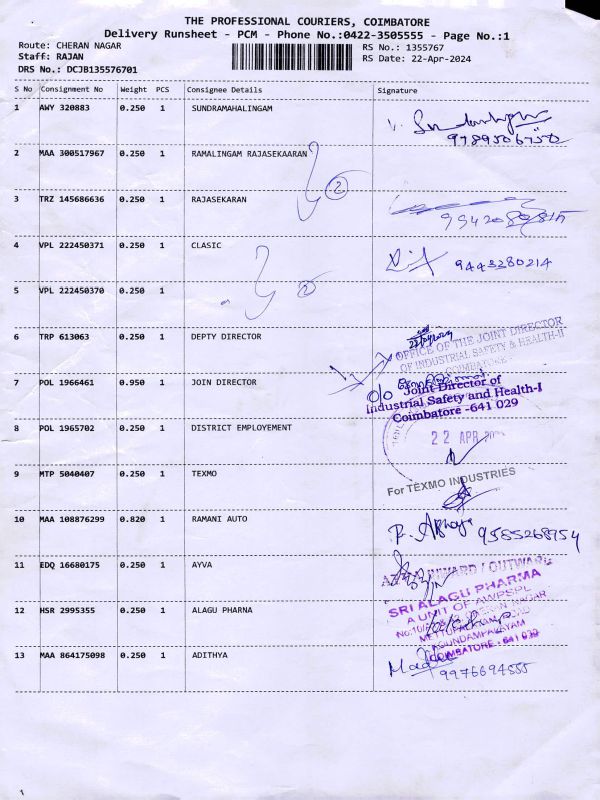 THE PROFESSIONAL COURIERS, COIMBATORE
Delivery Runsheet - PCM - Phone No.:0422-3505555 - Page No.:1
Route: CHERAN NAGAR RS No.: 1355767
Staff: RAJAN RS Date: 22-Apr-2024
DRS No.: DCJB135576701
S No Consignment No Weight PCS Consignee Details Signature
1 AWY 320883 0.250 1 SUNDRAMAHALINGAM
9789506750
2 MAA 300517967 0.250 1 RAMALINGAM RAJASEKAARAN
2
3 TRZ 145686636 0.250 1 RAJASEKARAN
4 VPL 222450371 0.250 1 CLASIC 9443280214
5 VPL 222450370 0.250 1
2
6 TRP 613063 0.250 1 DEPTY DIRECTOR
OFFICE OF THE JOINT DIRECTOR
OF INDUSTRIAL SAFETY & HEALTH-II
COIMBATORE
7 POL 1966461 0.950 1 JOIN DIRECTOR
O/O
Joint Director of
Industrial Safety and Health-I
Coimbatore -641 029
8 POL 1965702 0.250 1 DISTRICT EMPLOYEMENT
22 APR
9 MTP 5040407 0.250 1 TEXMO
For TEXMO INDUSTRIES
10 MAA 108876299 0.820 1 RAMANI AUTO
9585268954
11 EDQ 16680175 0.250 1 AYVA
INWARD / OUTWARD
12 HSR 2995355 0.250 1 ALAGU PHARNA
SRI ALAGU PHARMA
A UNIT OF AWPSPL
COIMBATORE - 641 030
13 MAA 864175098 0.250 1 ADITHYA
9976694555